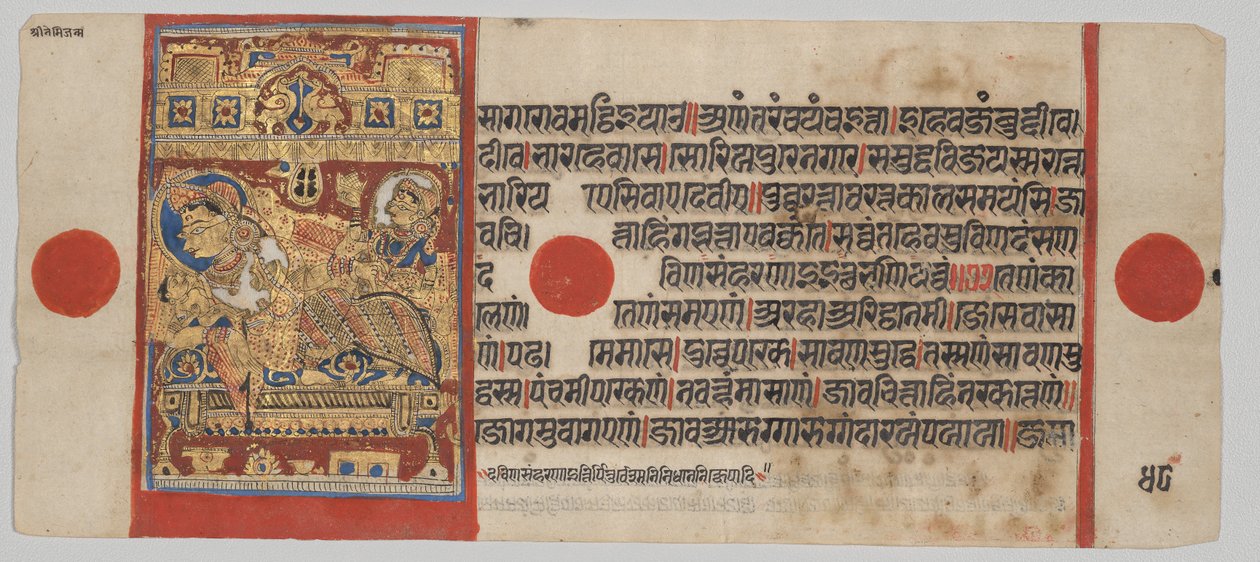 श्रीनेमिजन्म
सागरोवमट्ठिइयाउ॥अणंतरंचयंचइत्ता।इहेवजंबुद्दीवे
दीवे।भारहेवासे।सोरियपुरेनगरे।समुद्दविजयस्सरन्नो
भारिया एसिवाएदेवीए॥पुव्वरत्तावरत्तकालसमयंसि।जा
वचि। त्ताहिंगब्भत्ताएवक्कंते।सव्वंतहेवसुविणदंसण
द विणसंहरणाइइत्थभाणियव्वं॥ तेणंका
लेणं। तेणंसमएणं।अरहाअरिट्ठनेमी।जेसेवासा
णं।पढ। मेमासे।दुच्चेपक्खे।सावणसुद्धे।तस्सणंसावणसु
द्धस्स।पंचमीपक्खेणं।नवण्हंमासाणं।जावचित्ताहिंनक्खत्तेणं॥
जोगमुवागएणं।जावआरुग्गारुग्गंदारयंपयाया॥जम्म
दविणसंहरणाइत्तिपितुर्वेश्मनिनिधाननिक्षेपादि